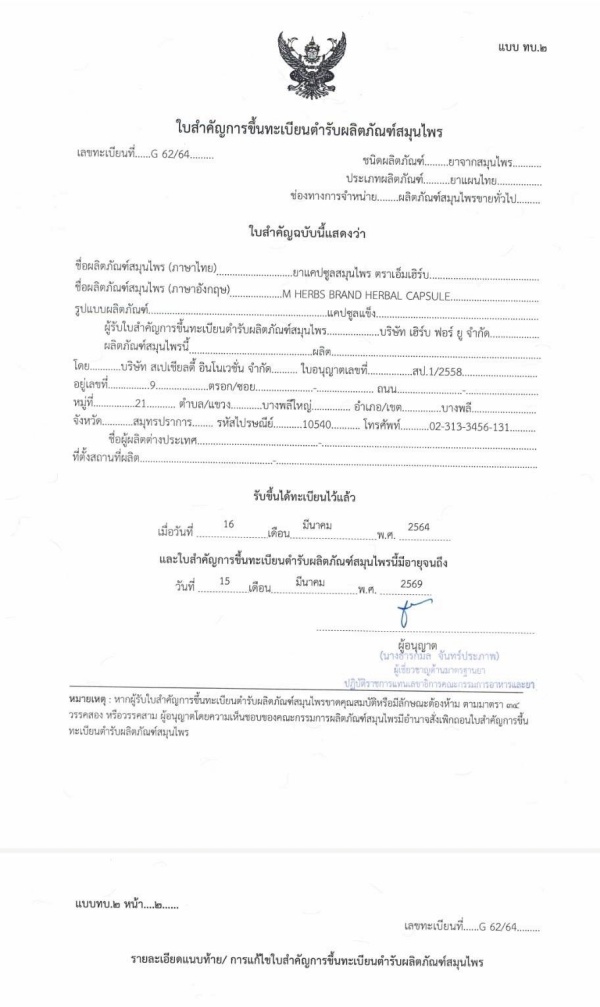 แบบ ทบ.๒
ใบสำคัญการขึ้นทะเบียนตำรับผลิตภัณฑ์สมุนไพร
เลขทะเบียนที่......G 62/64.........
ชนิดผลิตภัณฑ์........ยาจากสมุนไพร..........
ประเภทผลิตภัณฑ์.........ยาแผนไทย................
ช่องทางการจำหน่าย.......ผลิตภัณฑ์สมุนไพรขายทั่วไป........
ใบสำคัญฉบับนี้แสดงว่า
ชื่อผลิตภัณฑ์สมุนไพร (ภาษาไทย)......................ยาแคปซูลสมุนไพร ตราเอ็มเฮิร์บ..............................
ชื่อผลิตภัณฑ์สมุนไพร (ภาษาอังกฤษ)...............M HERBS BRAND HERBAL CAPSULE........................
รูปแบบผลิตภัณฑ์..................................................แคปซูลแข็ง..............................................
ผู้รับใบสำคัญการขึ้นทะเบียนตำรับผลิตภัณฑ์สมุนไพร...............บริษัท เฮิร์บ ฟอร์ ยู จำกัด..............
ผลิตภัณฑ์สมุนไพรนี้...................................ผลิต...........................................................
โดย...........บริษัท สเปเชียลตี้ อินโนเวชั่น จำกัด......... ใบอนุญาตเลขที่...............สป.1/2558......................
อยู่เลขที่..............9.................ตรอก/ซอย...................-................... ถนน......................-......................
หมู่ที่..............21.......... ตำบล/แขวง...........บางพลีใหญ่............. อำเภอ/เขต.............บางพลี......................
จังหวัด..........สมุทรปราการ....... รหัสไปรษณีย์..........10540.......... โทรศัพท์..........02-313-3456-131..........
ชื่อผู้ผลิตต่างประเทศ.........................................-.......................................................
ที่ตั้งสถานที่ผลิต.............................................-...................................................................
รับขึ้นได้ทะเบียนไว้แล้ว
เมื่อวันที่ ........16........เดือน........มีนาคม........พ.ศ. ....2564....
และใบสำคัญการขึ้นทะเบียนตำรับผลิตภัณฑ์สมุนไพรนี้มีอายุจนถึง
วันที่ ........15........เดือน........มีนาคม........พ.ศ. ....2569....
ผู้อนุญาต
จันทร์ประภาพ)
ผู้เชี่ยวชาญด้านมาตรฐานยา
ปฏิบัติราชการแทนเลขาธิการคณะกรรมการอาหารและยา
หมายเหตุ : หากผู้รับใบสำคัญการขึ้นทะเบียนตำรับผลิตภัณฑ์สมุนไพรขาดคุณสมบัติหรือมีลักษณะต้องห้าม ตามมาตรา ๓๔
วรรคสอง หรือวรรคสาม ผู้อนุญาตโดยความเห็นชอบของคณะกรรมการผลิตภัณฑ์สมุนไพรมีอำนาจสั่งเพิกถอนใบสำคัญการขึ้น
ทะเบียนตำรับผลิตภัณฑ์สมุนไพร
แบบทบ.๒ หน้า....๒......
เลขทะเบียนที่......G 62/64.........
รายละเอียดแนบท้าย/ การแก้ไขใบสำคัญการขึ้นทะเบียนตำรับผลิตภัณฑ์สมุนไพร